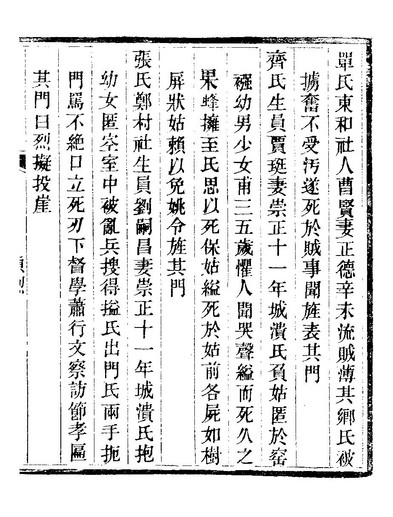 單氏東和社人曹賢妻正德辛未流賊薄其鄉氏被
擄奮不受汚遂死於賊事聞旌表其門
齊氏生員賈珽妻崇正十一年城潰氏負姑匿於窑
襁幼男少女甫三五歲懼人聞哭聲縊而死久之
果蜂擁至氏思以死保姑縊死於姑前各屍如樹
屏狀姑賴以免姚令旌其門
張氏鄭村社生員劉嗣昌妻崇正十一年城潰氏抱
幼女匿空室中被亂兵搜得搤氏出門氏兩手扼
門罵不絕口立死刃下督學蕭行文察訪節孝匾
其門曰烈擬投崖